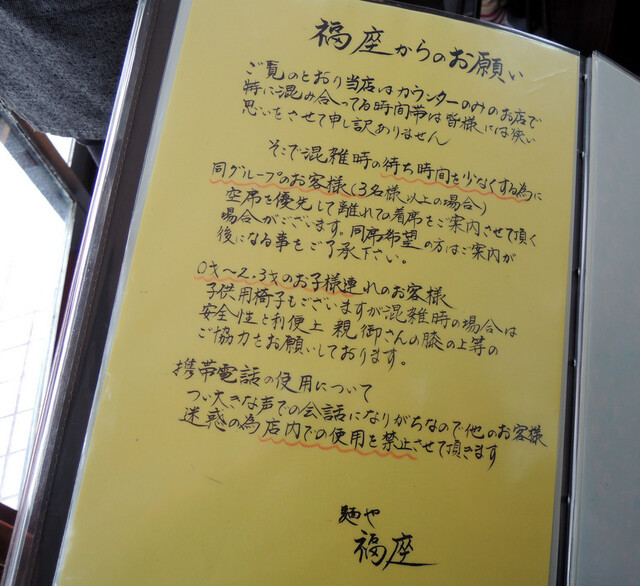 福座からのお願い
ご覧のとおり当店はカウンターのみのお店で
特に混み合ってる時間帯は皆様には狭い
思いをさせて申し訳ありません
そこで混雑時の待ち時間を少なくする為に
同グループのお客様(3名様以上の場合)
空席を優先して離れての着席をご案内させて頂く
場合がございます。同席希望の方はご案内が
後になる事をご了承下さい。
0才〜2.3才のお子様連れのお客様
子供用椅子もございますが混雑時の場合は
安全性と利便上 親御さんの膝の上等の
ご協力をお願いしております。
携帯電話の使用について
つい大きな声での会話になりがちなので他のお客様
迷惑の為店内での使用を禁止させて頂きます
麺や
福座